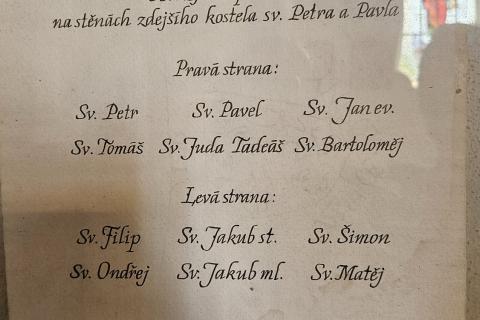 na stěnách zdejšího kostela sv. Petra a Pavla
Pravá strana:
Sv. Petr Sv. Pavel Sv. Jan ev.
Sv. Tomáš Sv. Juda Tadeáš Sv. Bartoloměj
Levá strana:
Sv. Filip Sv. Jakub st. Sv. Šimon
Sv. Ondřej Sv. Jakub ml. Sv. Matěj